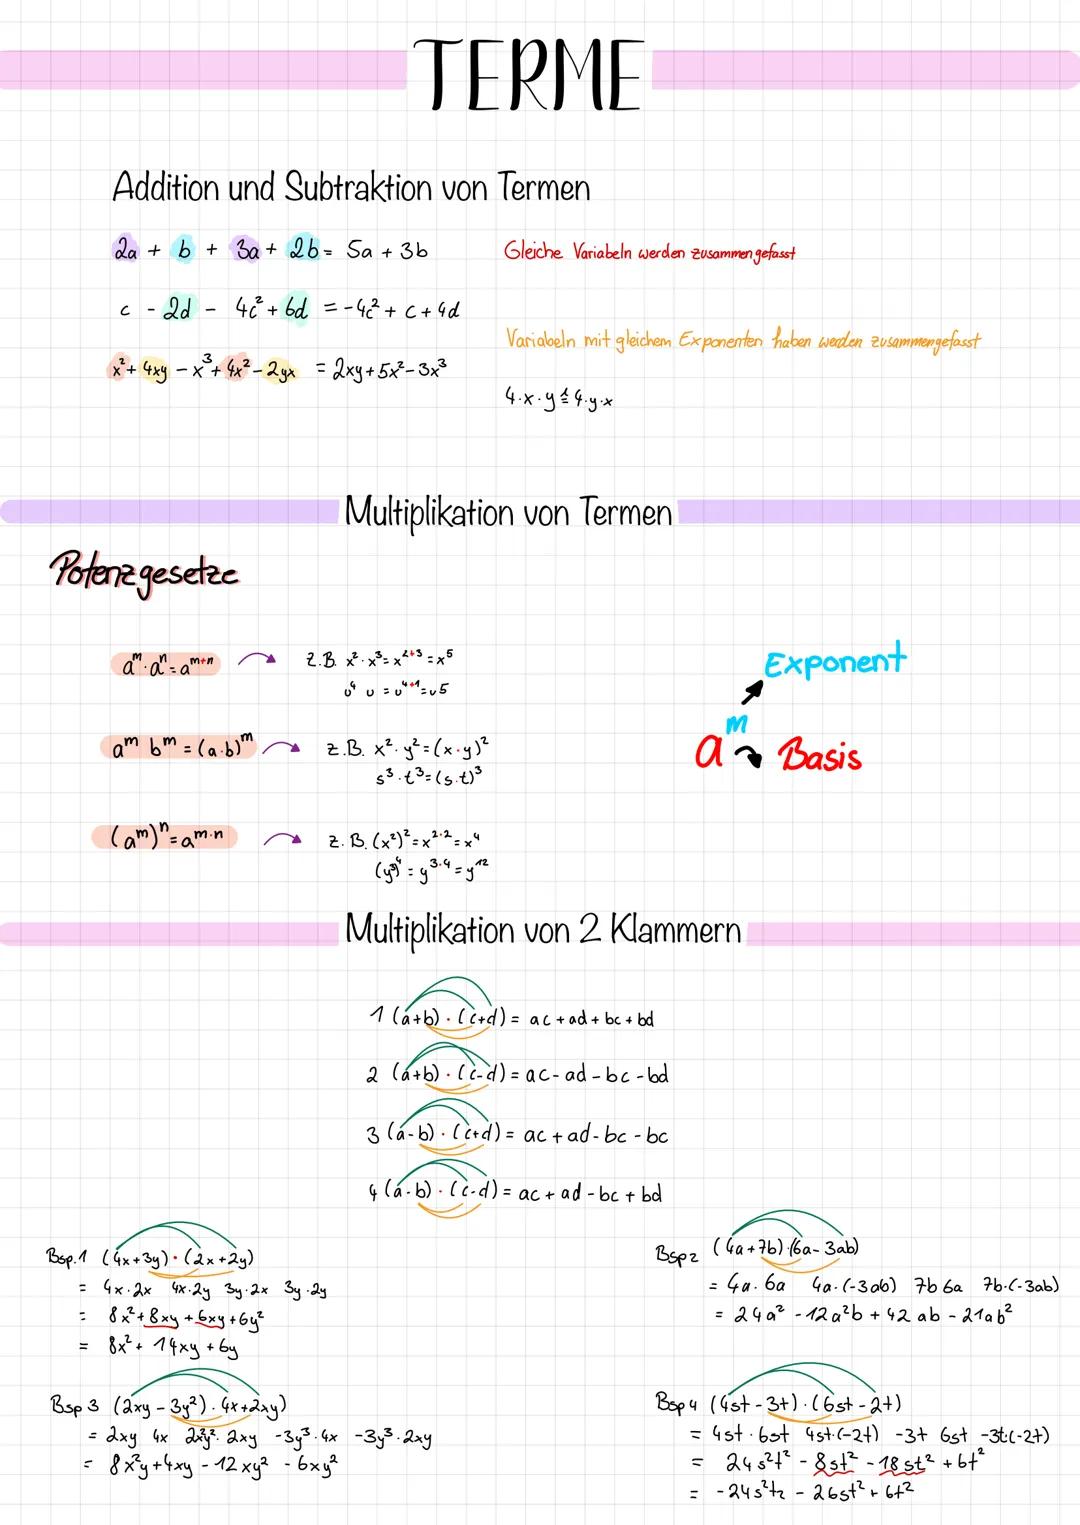 TERME
Addition und Subtraktion von Termen
2a + b + 3a + 2b = 5a + 3b
Gleiche Variabeln werden zusammengefasst
c - 2d - 4c² + 6d = -4c² + c + 4d
Variabeln mit gleichem Exponenten haben werden zusammengefasst
x² + 4xy - x³ + 4x² - 2yx = 2xy + 5x² - 3x³
4·x·y ≙ 4·y·x
Multiplikation von Termen
Potenzgesetze
aᵐ·aⁿ = aᵐ⁺ⁿ
z.B. x²·x³ = x²⁺³ = x⁵
u⁴ u = u⁴⁺¹ = u5
Exponent
aᵐ
Basis
aᵐ bᵐ = (a·b)ᵐ
z.B. x²·y² = (x·y)²
s³·t³ = (s·t)³
(aᵐ)ⁿ = aᵐ·ⁿ
z.B. (x²)² = x²·² = x⁴
(y³)⁴ = y³·⁴ = y¹²
Multiplikation von 2 Klammern
1 (a+b)·(c+d) = ac + ad + bc + bd
2 (a+b)·(c-d) = ac - ad - bc - bd
3 (a-b)·(c+d) = ac + ad - bc - bc
4 (a-b)·(c-d) = ac + ad - bc + bd
Bsp.1 (4x+3y)·(2x+2y)
= 4x·2x 4x·2y 3y·2x 3y·2y
= 8x² + 8xy + 6xy + 6y²
= 8x² + 14xy + 6y
Bsp2 (4a+7b)·(6a-3ab)
= 4a·6a 4a·(-3ab) 7b 6a 7b·(-3ab)
= 24a² - 12a²b + 42ab - 21ab²
Bsp 3 (2xy - 3y²)·4x+2xy)
= 2xy 4x 2xy² 2xy -3y³·4x -3y³·2xy
= 8x²y + 4xy - 12xy² - 6xy²
Bsp 4 (4st - 3t)·(6st - 2t)
= 4st·6st 4st·(-2t) -3t 6st -3t(-2t)
= 24s²t² - 8st² - 18st² + 6t²
= -24s²t2 - 26st² + 6t²